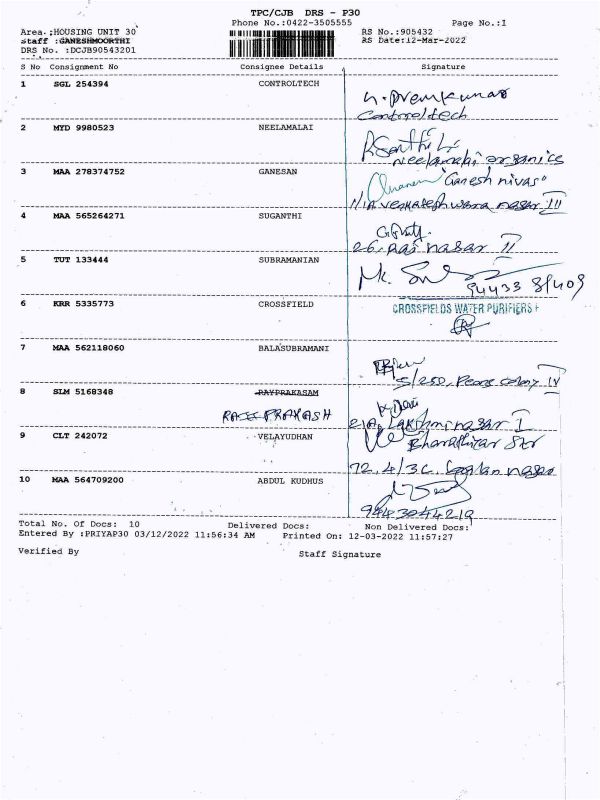 TPC/CJB DRS - P30
Phone No.:0422-3505555 Page No.:1
Area :HOUSING UNIT 30 RS No.:905432
Staff :GANESHMOORTHI RS Date:12-Mar-2022
DRS No. :DCJB90543201
S No Consignment No Consignee Details Signature
1 SGL 254394 CONTROLTECH
controltech
2 MYD 9980523 NEELAMALAI
neelamalai organics
3 MAA 278374752 GANESAN "Ganesh nivas"
1/1A venkateshwara nagar III
4 MAA 565264271 SUGANTHI
26, Raj nagar II
5 TUT 133444 SUBRAMANIAN
6 KRR 5335773 CROSSFIELD CROSSFIELDS WATER PURIFIERS
7 MAA 562118060 BALASUBRAMANI
5/250, Pears colony IV
8 SLM 5168348 RAYPRAKASAM
PRAKASH 21A, Lakshmi nagar I
9 CLT 242072 VELAYUDHAN Bharathiyar Str
72, 4/3C, nagar
10 MAA 564709200 ABDUL KUDHUS
9443044219
Total No. Of Docs: 10 Delivered Docs: Non Delivered Docs:
Entered By :PRIYAP30 03/12/2022 11:56:34 AM Printed On: 12-03-2022 11:57:27
Verified By Staff Signature